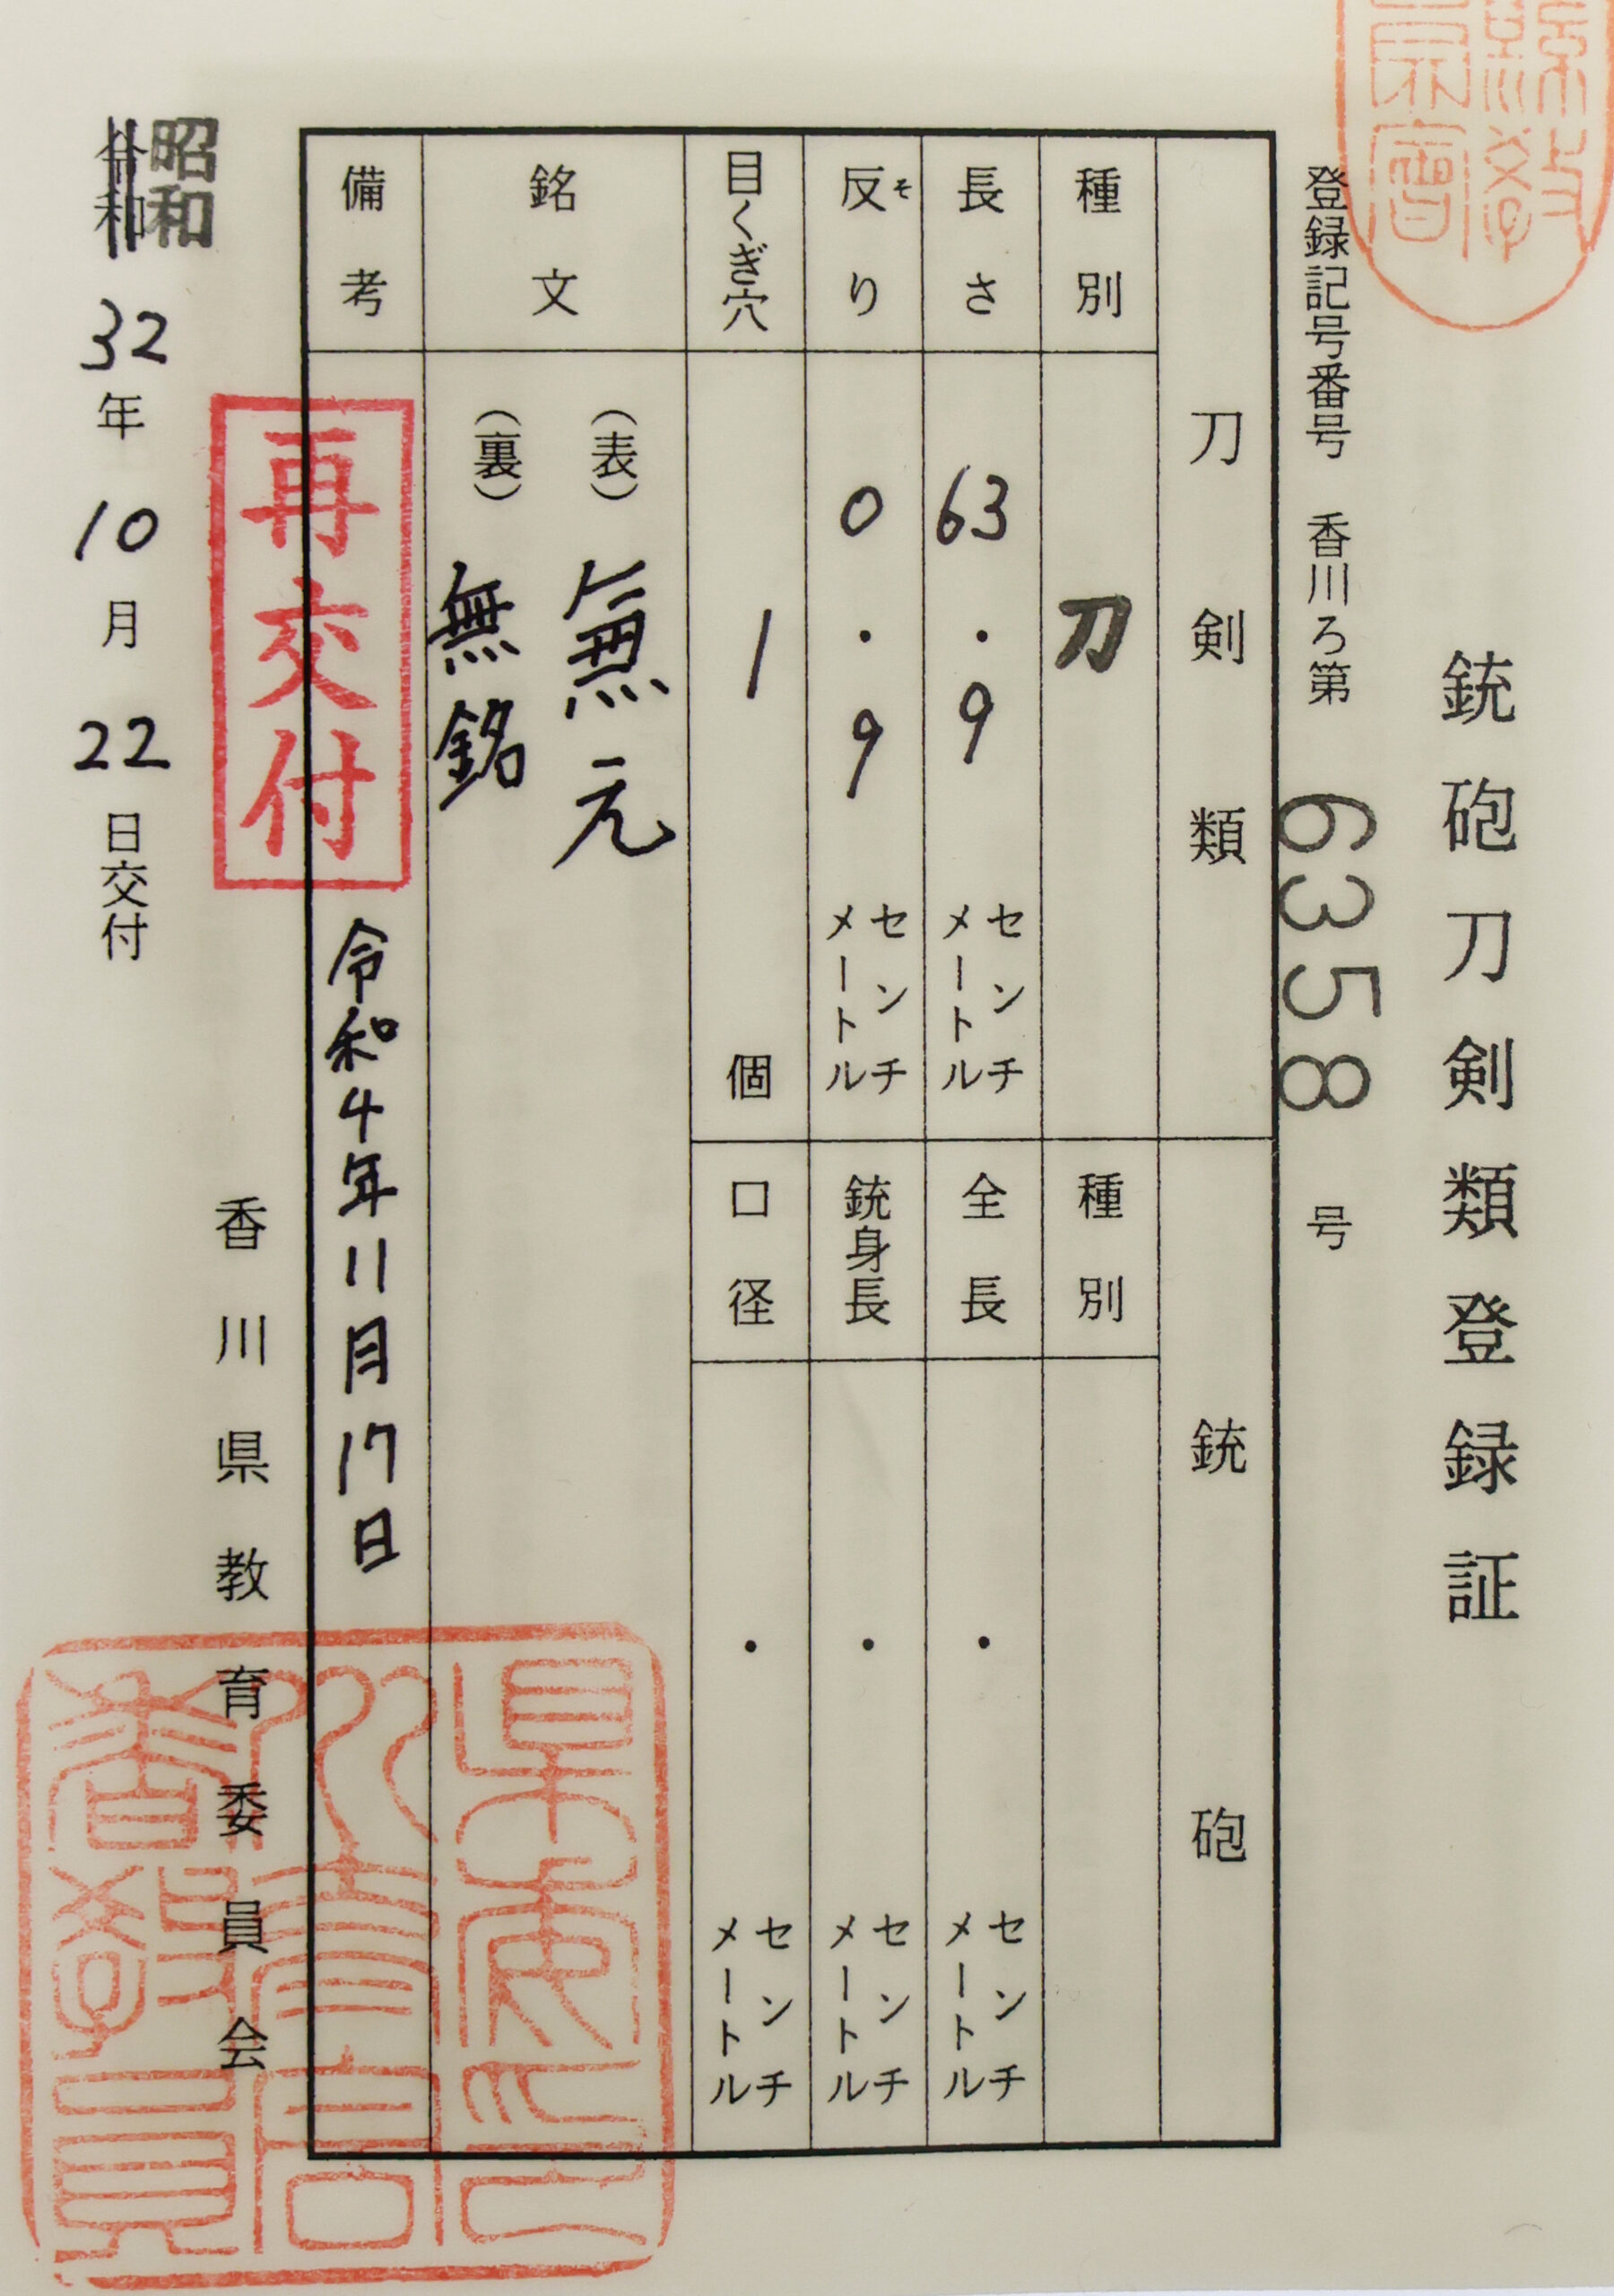 銃砲刀剣類登録証
登録記号番号 香川ろ第 6358 号
刀剣類
銃砲
種別 刀
種別
長さ 63.9 センチメートル
全長 ・ センチメートル
反り 0.9 センチメートル
そ
銃身長 ・ センチメートル
目くぎ穴 1 個
口径 ・ センチメートル
銘文 (表) 兼元
(裏) 無銘
備考 再交付 令和4年11月17日
香川県教育委員会
昭和
令和 32年10月22日交付